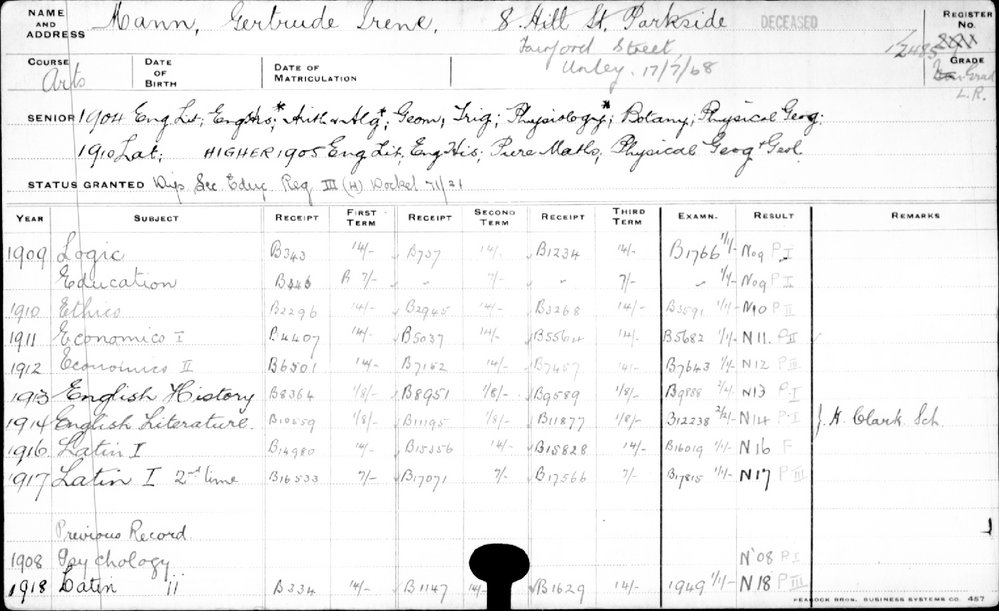 NAME AND ADDRESS Mann, Gertrude Irene, 8. Hill St. Parkside DECEASED REGISTER No.
Fairford Street 12485
Unley. 17/7/68
COURSE Arts DATE OF BIRTH DATE OF MATRICULATION GRADE
L.R.
SENIOR 1904 Eng Lit; Eng His*; Arith & Alg*; Geom; Trig; Physiology*; Botany; Physical Geog;
1910 Lat; HIGHER 1905 Eng Lit, Eng His; Pure Maths, Physical Geog & Geol.
STATUS GRANTED Dip. Sec. Educ. Reg III (H) Docket 71/21
YEAR SUBJECT RECEIPT FIRST TERM RECEIPT SECOND TERM RECEIPT THIRD TERM EXAMN. RESULT REMARKS
1909 Logic B343 14/- B737 14/- B1234 14/- B1766 1/1/- N09 P.I
Education B343 A 7/- " 7/- " 7/- " 1/1/- N09 P II
1910 Ethics B2296 14/- B2945 14/- B3268 14/- B3591 1/1/- N10 P II
1911 Economics I B4407 14/- B5037 14/- B5564 14/- B5682 1/1/- N11. P.II
1912 Economics II B6501 14/- B7152 14/- B7457 14/- B7643 1/1/- N12 P III
1913 English History B8364 1/8/- B8951 1/8/- B9589 1/8/- B9888 2/2/- N13 P.I
1914 English Literature. B10559 1/8/- B11195 1/8/- B11877 1/8/- B12238 2/2/- N14 P.I J. H. Clark Sch.
1916 Latin I B14980 14/- B15356 14/- B15828 14/- B16019 1/1/- N16 F
1917 Latin I 2nd time B16533 7/- B17071 7/- B17566 7/- B17815 1/1/- N17 P III
Previous Record
1908 Psychology N'08 P.I
1918 Latin ii B334 14/- B1147 14/- B1629 14/- 1949 1/1/- N18 P III
PEACOCK BROS. BUSINESS SYSTEMS CO. 457